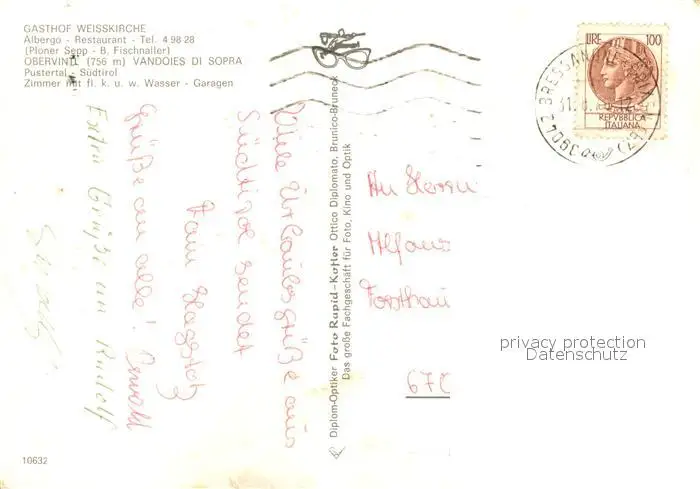 GASTHOF WEISSKIRCHE
Albergo - Restaurant - Tel. 4 98 28
(Ploner Sepp - B. Fischnaller)
OBERVINTL (756 m) VANDOIES DI SOPRA
Pustertal - Südtirol
Zimmer mit fl. k. u. w. Wasser - Garagen
Viele Urlaubsgrüße aus
Südtirol sendet
Fam.
Grüße an alle!
Extra Grüße an Rudolf
10632
Diplom-Optiker Foto Rapid-Kofler Ottico Diplomato, Brunico-Bruneck
Das große Fachgeschäft für Foto, Kino und Optik
LIRE 100
REPVBBLICA
ITALIANA
39042 BRESSANONE (BZ)
An Herrn
Alfons
672
privacy protection
Datenschutz